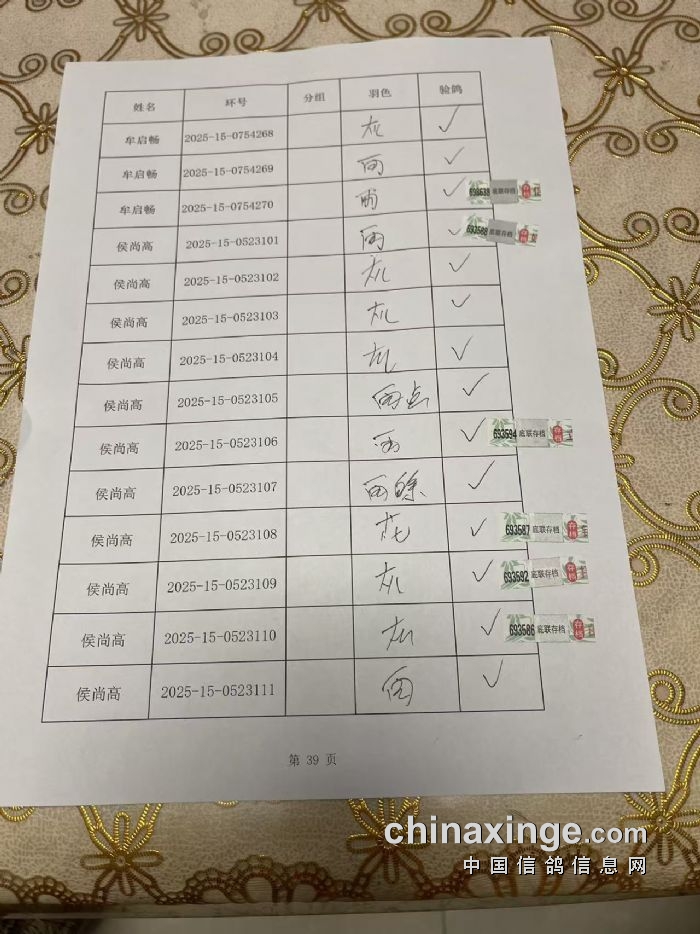 姓名 环号 分组 羽色 验鸽
牟启畅 2025-15-0754268 灰 ✓
牟启畅 2025-15-0754269 雨 ✓
牟启畅 2025-15-0754270 雨 ✓ 693638 底联存档 存档
侯尚高 2025-15-0523101 雨 ✓ 693588 底联存档 存档
侯尚高 2025-15-0523102 灰 ✓
侯尚高 2025-15-0523103 灰 ✓
侯尚高 2025-15-0523104 灰 ✓
侯尚高 2025-15-0523105 雨点 ✓
侯尚高 2025-15-0523106 雨 ✓ 693594 底联存档 存档
侯尚高 2025-15-0523107 雨 ✓
侯尚高 2025-15-0523108 花 ✓ 693587 底联存档 存档
侯尚高 2025-15-0523109 灰 ✓ 693592 底联存档 存档
侯尚高 2025-15-0523110 灰 ✓ 693586 底联存档 存档
侯尚高 2025-15-0523111 雨 ✓
第 39 页
chinaxinge.com
中国信鸽信息网